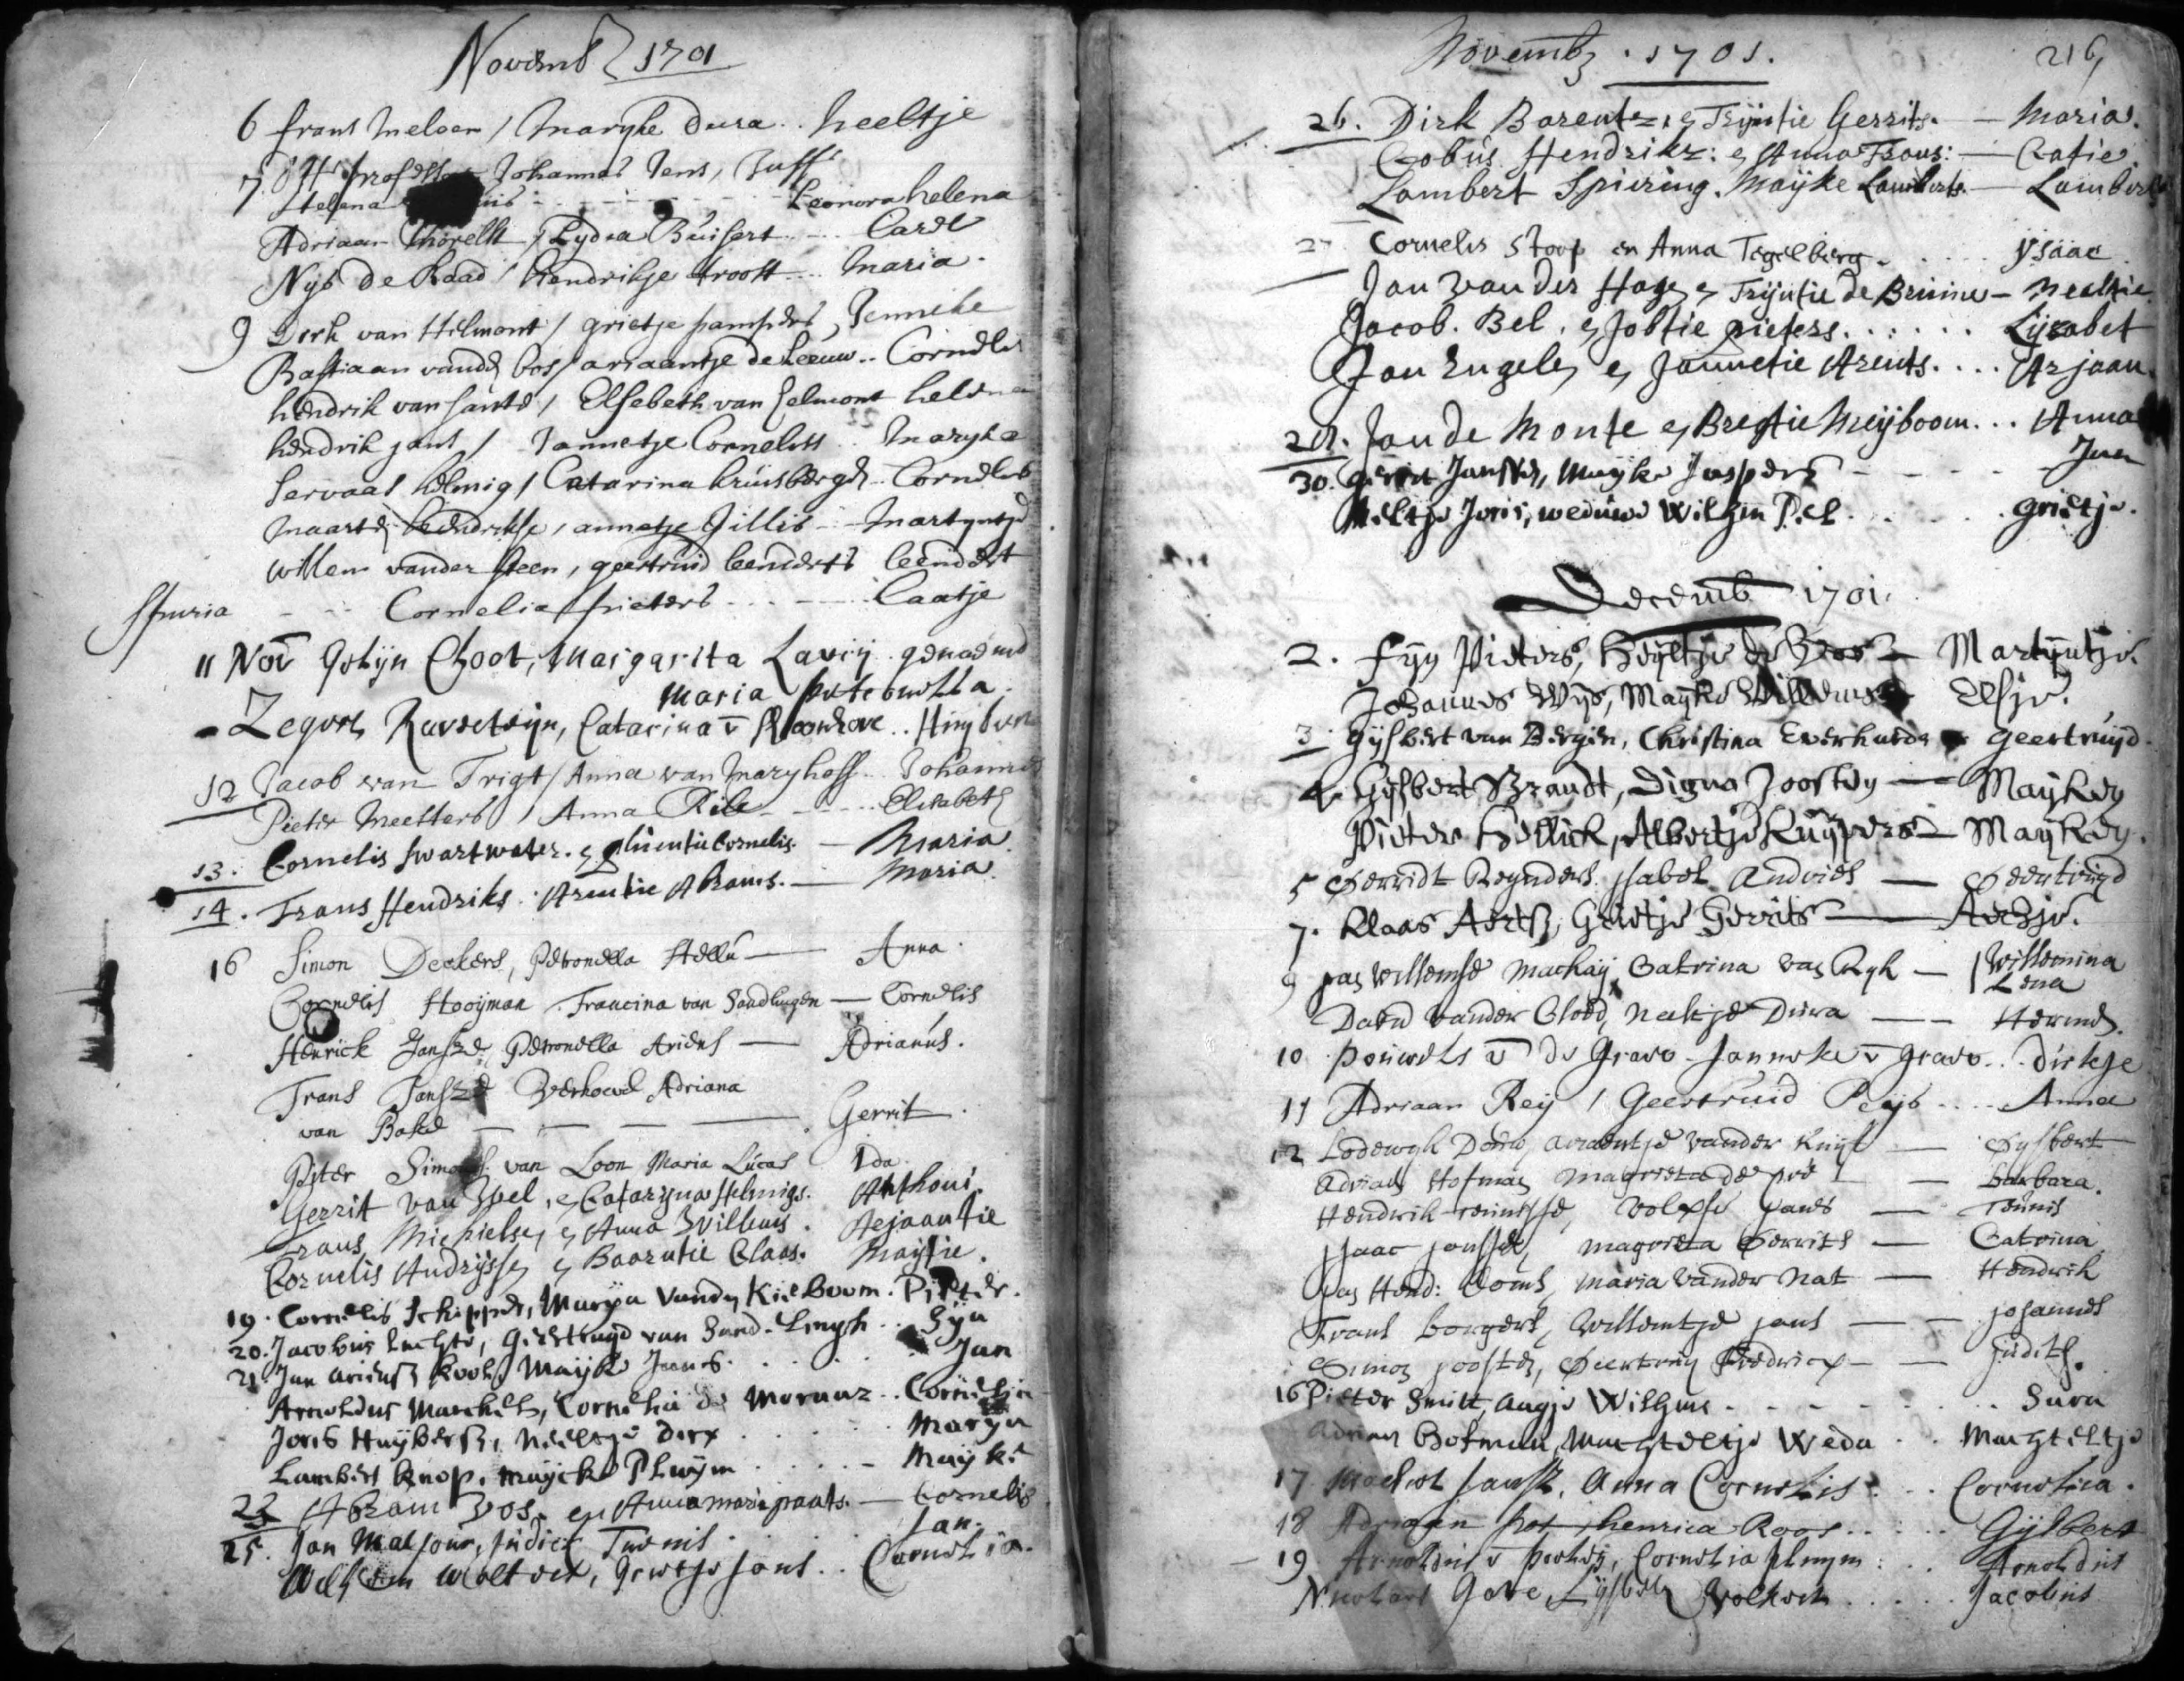 Novemb 1701
6 frans melser / maryke dura .. neeltje
7 Johannes Jens, Juff
Helena Leonora helena
Adriaan / Lydia Buisert ... Carel
Nys de Raad / hendrikje troost ... maria.
9 Dirk van Helmont / grietje Jenneke
Bastiaan vande bos / ariaantje de Leeuw .. Cornelis
hendrik van sante / Elsebeth van helmont helena
hendrik jans / Jannetje Corneliss .. maryke
Servaas helmig / Catarina kruisberge .. Cornelis
maarte hendrikse, annetje Jillis - Martyntje
willem vander steen, geertruid leenderts leendert
Spuria - - - Cornelia pieters ... Caatje
11 Nov Gelyn Choot, Margarita Lavij genaemd
Maria petronella.
Zeger Raveteijn, Catarina v
12 Jacob van Trigt / Anna van maryhoff .. Johannes
Pieter Meesters / Anna .... Elisabeth
13. Cornelis swartwater. e Cornelis. - Maria.
14. Frans Hendriks. Arentie Abrams. - Maria.
16 Simon Deckers, Petronella Anna.
Cornelis Hooijman Francina van Sandbergen - Cornelis
Henrick Jansze, Petronella Ariens - Adrianus.
Frans Jansze Verhoeve Adriana
van Bake - - - Gerrit.
Piter Simons. van Loon Maria Lucas Ida.
Gerrit van Ipel, e Catarijna Helmigs. Anthoni.
Frans Michielse, e Anna Willems. Aejaantie
Cornelis Andrijsse, e Baarntie Claas. Maijtie.
19. Cornelis Schipper, Marya vande Kieboom. Pieter.
20. Jacobus, Geertruyd van Sand-Lengh .. Syn
21 Jan ariensz kool, Mayke Jans. .... Jan
Arnoldus Marchels, Cornelia de Moraaz .. Cornelia
Joris Huijbersz, Neeltje Dirx ..... Marya
Lambert Knop, Muijcke Pluijm ..... Mayke
23 Abram Vos. en Annamari paats. - Cornelis
25. Jan Maljour, Judick Tuenis ... Jan.
Willem, Geertje Jans .. Cornelia.
Novemb . 1701.
216
26. Dirk Barentz. e Trijntie Gerrits. - Maria.
Cobus Hendrikz: e Anna Frans: - Catie.
Lambert Spiering. Maijke Lamberts. - Lambert
27 Cornelis Stoop en Anna Tegelberg ..... Ysaac
Jan van der Hage, e Trijntie de Bruine - Neeltie.
Jacob. Bel, e Jobtie pieters ...... Lijsabet
Jan Engele, e Jannetie Arents .... Arjaan.
28. Jan de Monte e Bregtie Meijboom ... Anna
30. gerrit Jansse, Mayke Jaspers - - - Jan
Neeltje Joris, weduwe Willem Pel ..... grietje.
Decemb 1701.
2. Pieters, Heyltje de Vos - Martyntje.
Johannes Wijs, Mayke Willems Elsje.
3 Gysbert van Bergen, Christina Everharda Geertruyd.
4. Gysbert Brandt, Digna Joosten - Mayken
Pieter Hellick, Albertje Kuypers - Mayken.
5 Gerridt Reynders. Isabel Andries - Geertruyd
7. Klaas Aertsz, Grietje Gerrits - Aertje.
9 Jan Willemse Mackay, Catrina van Ryk - Willemina
Lena
David vander Gloed, Neeltje Dura - Herme.
10 pouwels v de Grave - Janneke v Grave .. Dirkje
11 Adriaan Rey / Geertruid .... Anna
12 Lodewyk, ariaentje vander Kuijl - Gysbert
Adrian Hofman Magrieta de - Barbara.
Hendrik Teunisse, Jans - Teunis
Isaac Jansse, Magrieta Gerrits - Catrina
Jan Hend: Cools, Maria vander Nat - Hendrik
Frans Borgers, Willemtje Jans - Johannes
Simon Joosten, Geertruy Fredricx - Judith.
16 Pieter Smitt, Angje Willems - - - Sara
Adrian Botman, Machteltje Weda .. Machteltje
17 Jansz, Anna Cornelis .. Cornelia.
18 Adriaan, henrica Roos ..... Gysbert
19 Arnoldus v, Cornelia pluym ... Arnoldus
Gove, Lysbeth Volkert ..... Jacobus